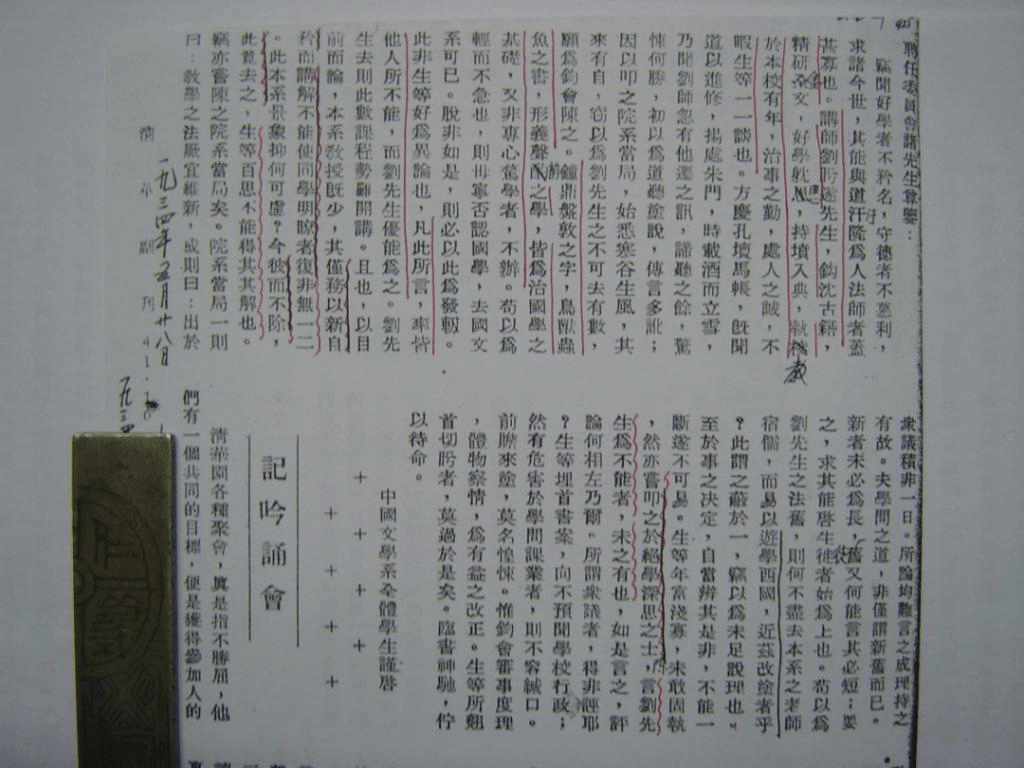 聘任委員會諸先生尊鑒：
竊聞好學者不矜名，守德者不墓利，
求諸今世，其能與道汙隆爲人法師者蓋
甚寡也。講師劉盼遂先生，鈎沈古籍，
精研金文，好學躭思，持墳入典，執教
於本校有年，治事之勤，處人之誠，不
暇生等一一談也。方慶孔壇馬帳，旣聞
道以進修，揚處朱門，時載酒而立雪，
乃聞劉師忽有他遷之訊，諦聽之餘，驚
悚何勝，初以爲道聽塗說，傳言多訛；
因以叩之院系當局，始悉寒谷生風，其
來有自，竊以爲劉先生之不可去有數，
願爲鈞會陳之。鐘鼎盤敦之字，鳥獸蟲
魚之書，形義聲韵之學，皆爲治國學之
基礎，又非專心舊學者，不辦。苟以爲
輕而不急也，則毋寧否認國學，去國文
系可已。脫非如是，則必以此爲發軔。
此非生等好爲異論也，凡此所言，率皆
他人所不能，而劉先生優能爲之。劉先
生去則此數課程勢難開講。且也，以目
前而論，本系教授旣少，其僅務以新自
矜而講解不能使同學明瞭者復非無一二
。此本系景象抑何可慮？今彼而不除，
此竟去之，生等百思不能得其解也。
竊亦嘗陳之院系當局矣。院系當局一則
曰：教學之法厥宜維新，或則曰：出於
清華副刊 41.
一九三四年五月廿八
衆議積非一日。所論均難言之成理持之
有故。夫學問之道，非僅謂新舊而已。
新者未必爲長，舊又何能言其必短；要
之，求其能啓生徒者始爲上也。苟以爲
劉先生之法舊，則何不盡去本系之老師
宿儒，而易以遊學西國，近茲改塗者乎
？此謂之蔽於一，竊以爲未足說理也。
至於事之決定，自當辨其是非，不能一
斷遂不可易。生等年富淺寡，未敢固執
，然亦嘗叩之於絕學深思之士，言劉先
生爲不能者，未之有也，如是言之，評
論何相左乃爾。所謂衆議者，得非誣耶
？生等埋首書案，向不預聞學校行政；
然有危害於學問課業者，則不容緘口。
前瞻來塗，莫名惶悚。惟鈞會審事度理
，體物察情，爲有益之改正。生等所翹
首切盼者，莫過於是矣。臨書神馳，佇
以待命。
中國文學系全體學生謹啓
＋＋＋＋＋＋＋
記吟誦會
清華園各種聚會，眞是指不勝屈，他
們有一個共同的目標，便是獲得參加人的